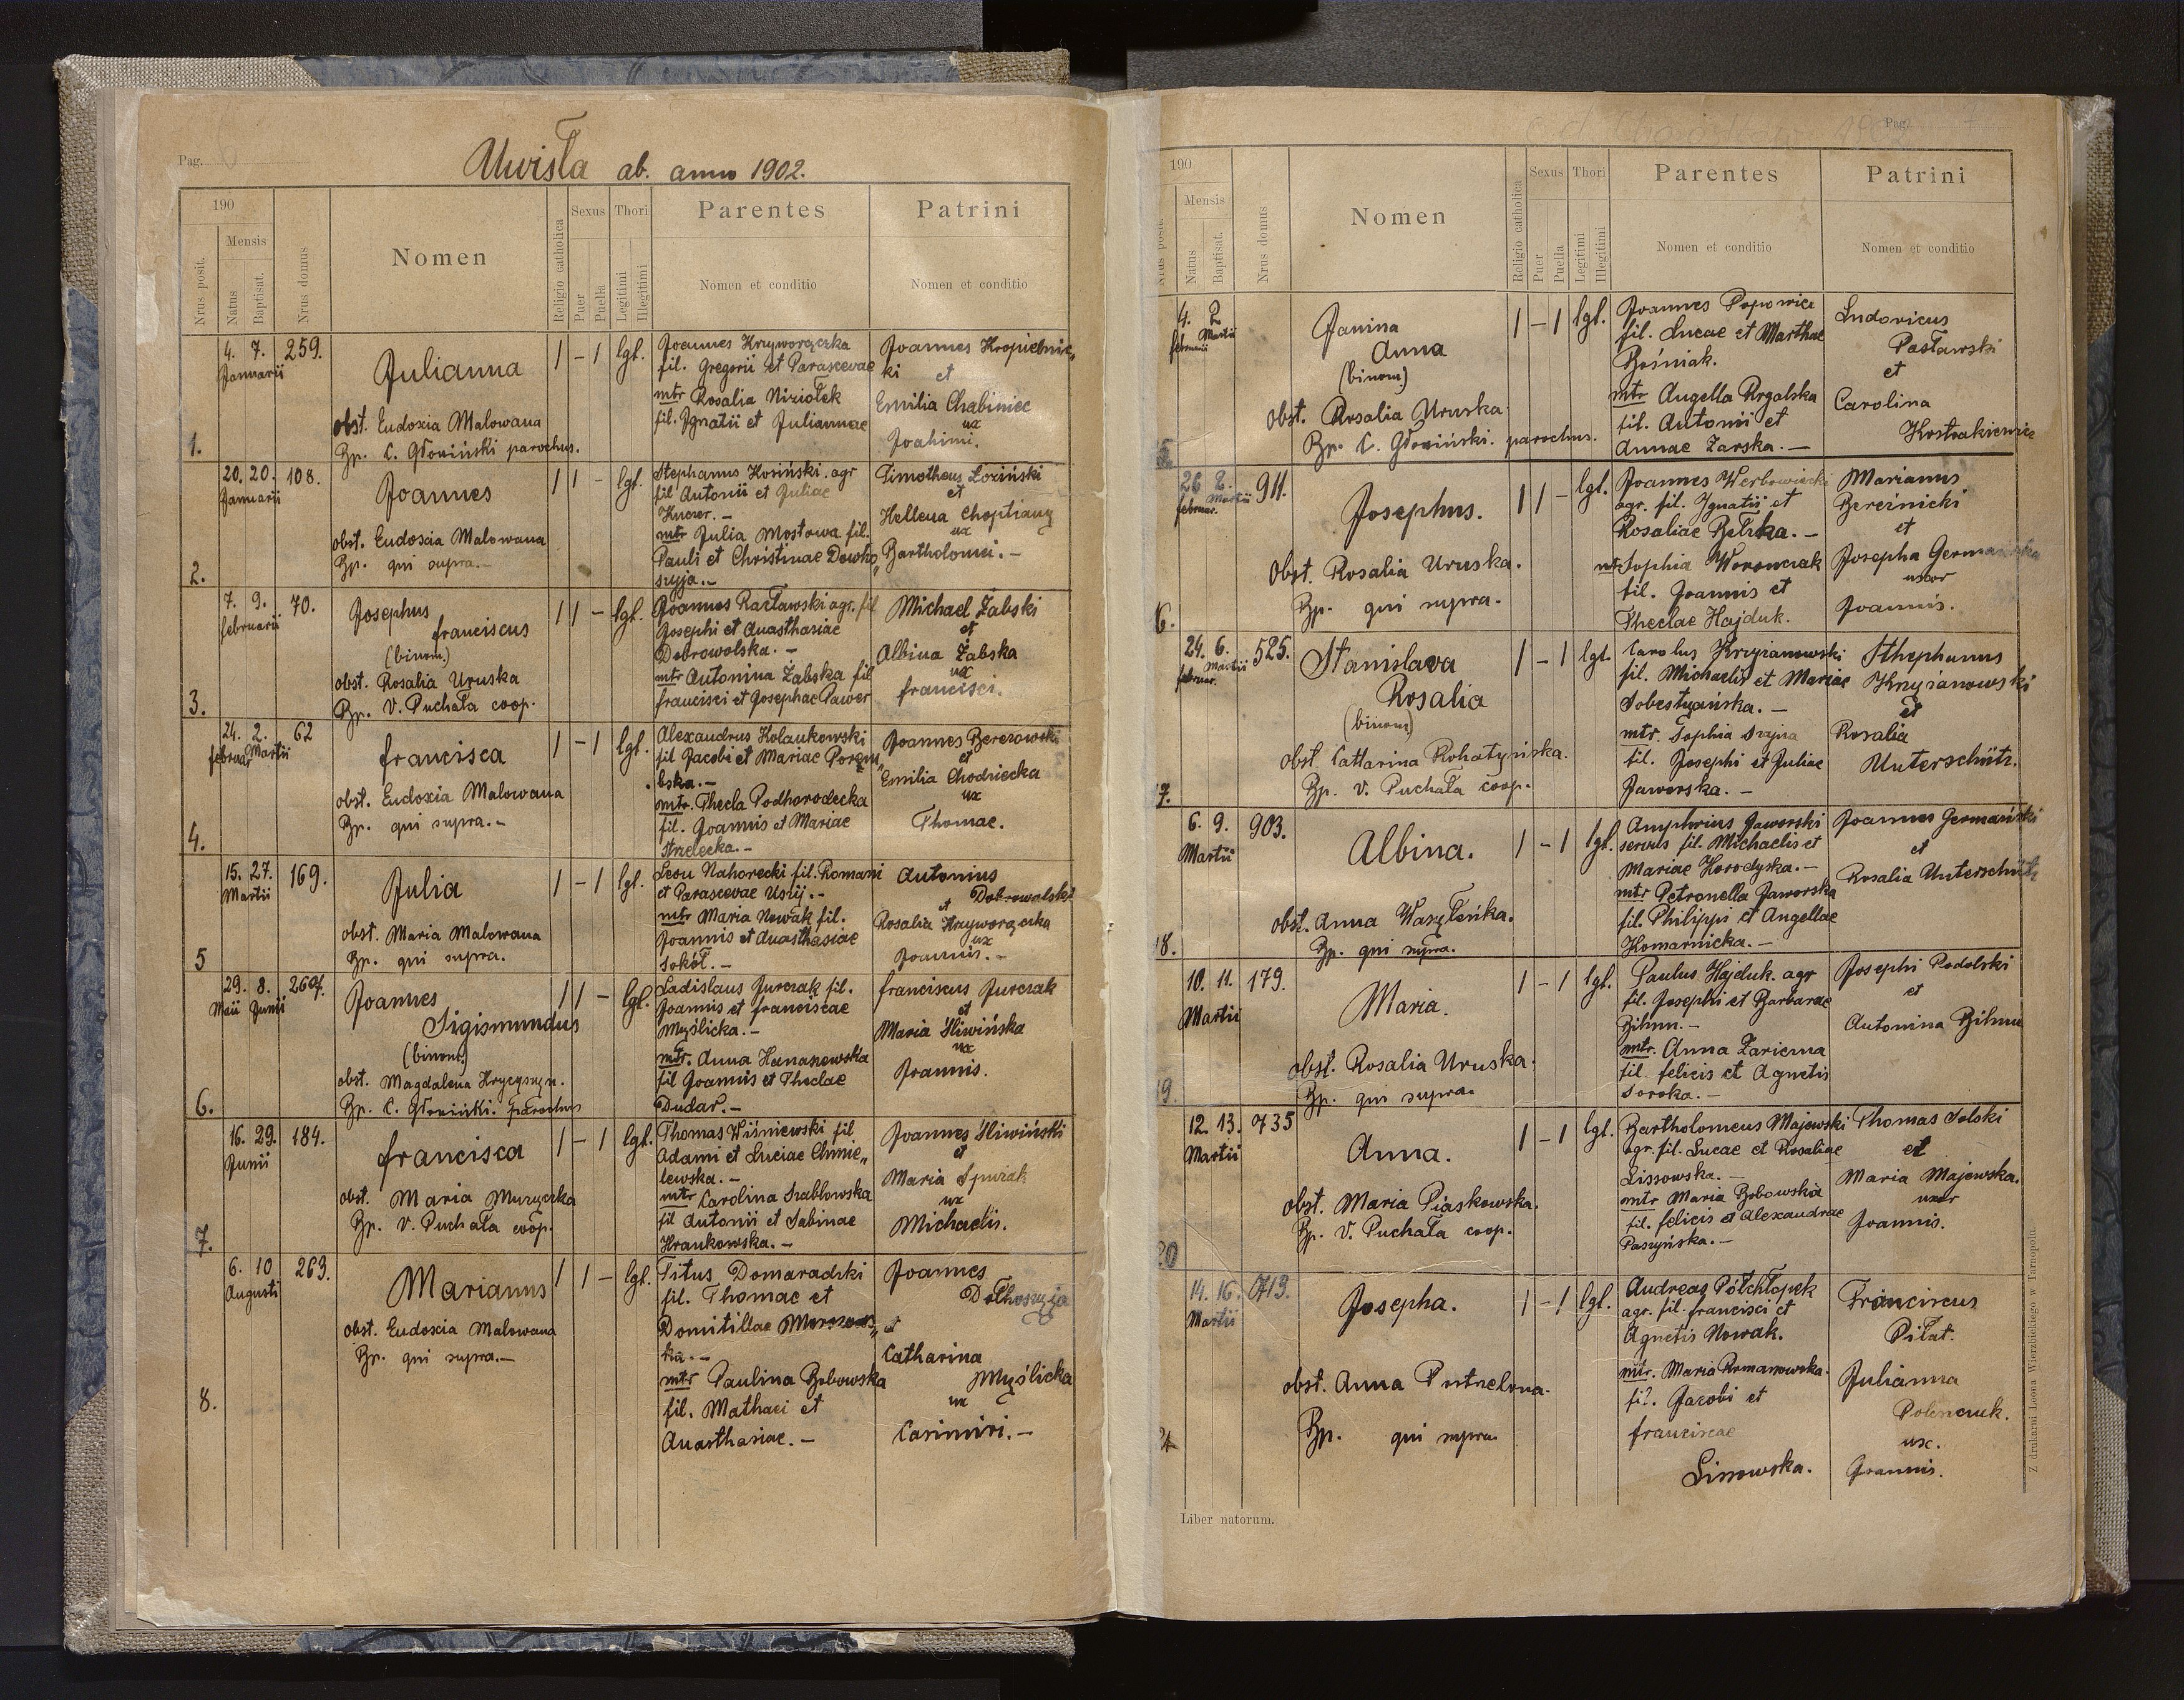 Pag. 6
Uwisła ab. anno 1902.
190
Mensis
Nrus posit.
Natus
Baptisat.
Nrus domus
Nomen
Religio catholica
Sexus
Puer
Puella
Thori
Legitimi
Illegitimi
Parentes
Nomen et conditio
Patrini
Nomen et conditio
1.
4. 7.
Januarii
259.
Julianna
obst. Eudoxia Malowana
Bp. C. Głoziński parochus.
1 – 1 lgl.
Joannes Krzyworączka
fil. Gregorii et Parascevae
mtr Rosalia Niziołek
fil. Ignatii et Juliannae
Joannes Kropielnic„
ki et
Emilia Chabiniec
ux
Joahimi.
2.
20. 20.
Januarii
108.
Joannes
obst. Eudoxia Malowana
Bp. qui supra.–
1 1 – lgl.
Stephanus Kosiński. agr
fil Antonii et Juliae
Kuczer. –
mtr Julia Mostowa fil.
Pauli et Christinae Dowho„
szyja.–
Timotheus Łoziński
et
Hellena Choptiany
ux
Bartholomei. –
3.
7. 9.
februarii
70.
Josephus
franciscus
(binom.)
obst. Rosalia Uruska
Bp. V. Puchała coop.
1 1 – lgl.
Joannes Racławski agr. fil
Josephi et Anasthasiae
Dobrowolska. –
mtr Antonina Żabska fil
francisci et Josephae Pawer
Michael Żabski
et
Albina Żabska
ux
francisci.
4.
24. 2.
februar Martii
62
francisca
obst. Eudoxia Malowana
Bp. qui supra.–
1 – 1 lgl.
Alexandrus Kolankowski
fil Jacobi et Mariae Porem„
bska.–
mtr. Thecla Podhorodecka
fil. Joannis et Mariae
Strzelecka.–
Joannes Berezowski
et
Emilia Chodziecka
ux
Thomae.
5
15. 27.
Martii
169.
Julia
obst. Maria Malowana
Bp. qui supra.
1 – 1 lgl.
Leon Nahorecki fil. Romani
et Parascevae Usij.–
mtr Maria Nowak fil.
Joannis et Anasthasiae
Sokół. –
Antonius
Dobrowolski
et
Rosalia Krzyworączka
ux
Joannis. –
6.
29. 8.
Maii Junii
267.
Joannes
Sigismundus
(binom)
obst. Magdalena Hrycyszyn.
Bp. C. Głoziński. parochus
1 1 – lgl.
Ladislaus Jurczak fil.
Joannis et franciscae
Myślicka. –
mtr. Anna Hanaszewska
fil Joannis et Theclae
Dudar. –
franciscus Jurczak
et
Maria Śliwińska
ux
Joannis.
7.
16. 29.
Junii
184.
francisca
obst. Maria Muryczka
Bp. V. Puchała coop.
1 – 1 lgl.
Thomas Wiśniewski fil
Adami et Luciae Chmie„
lewska. –
mtr Carolina Szablowska
fil Antonii et Sabinae
Krankowska. –
Joannes Śliwiński
et
Maria Spuzak
ux
Michaelis.
8.
6. 10
Augusti
263.
Marianus
obst. Eudoxia Malowana
Bp. qui supra.–
1 1 – lgl.
Titus Domaradzki
fil. Thomae et
Domitillae
ka.–
mtr Paulina Bobowska
fil. Mathaei et
Anasthasiae. –
Joannes
Dołhoszyja
et
Catharina
Myślicka
ux
Casimiri. –
Pag. 7
190
Mensis
Nrus posit.
Natus
Baptisat.
Nrus domus
Nomen
Religio catholica
Sexus
Puer
Puella
Thori
Legitimi
Illegitimi
Parentes
Nomen et conditio
Patrini
Nomen et conditio
4. 2
februarii Martii
Janina
Anna
(binom)
obst. Rosalia Uruska
Bp. C. Głoziński. parochus.
1 – 1 lgl.
Joannes Popowicz
fil. Lucae et Marthae
Bośniak.
mtr Angella Rzgalska
fil. Antonii et
Annae Zarska. –
Ludovicus
Pasławski
et
Carolina
Kostrakiewicz
6.
26 2.
februar. Martii
911.
Josephus.
Obst. Rosalia Uruska.
Bp. qui supra.
1 1 – lgl.
Joannes Werbowiecki
agr. fil. Ignatii et
Rosaliae Belzka. –
mtr Sophia Woronczak
fil. Joannis et
Theclae Hajduk.
Marianus
Bereźnicki
et
Josepha Germańska
uxor
Joannis.
7.
24. 6.
februar. Martii
525.
Stanislava
Rosalia
(binom)
obst. Cattarina Rohatyńska.
Bp. V. Puchała coop.
1 – 1 lgl.
Carolus Krzyżanowski
fil. Michaelis et Mariae
Sobestyańska. –
mtr. Sophia Szajna
fil. Josephi et Juliae
Jaworska. –
Sthephanus
Krzyżanowski
et
Rosalia
Unterschütz.
18.
6. 9.
Martii
903.
Albina.
obst. Anna Wasyłeńka.
Bp. qui supra.
1 – 1 lgl.
Amphrius Jaworski
servus fil. Michaelis et
Mariae Horodyska. –
mtr Petronella Jaworska
fil. Philippi et Angellae
Komarnicka. –
Joannes Germański
et
Rosalia Unterschütz
19.
10. 11.
Martii
179.
Maria.
obst. Rosalia Uruska.
Bp. qui supra.
1 – 1 lgl.
Paulus Hajduk. agr
fil. Josephi et Barbarae
Bihun. –
mtr. Anna Zariczna
fil. felicis et Agnetis
Soroka. –
Josephi Podolski
et
Antonina Bihun
20
12. 13.
Martii
735
Anna.
obst. Maria Piaskowska.
Bp. V. Puchała coop.
1 – 1 lgl.
Bartholomeus Majewski
agr. fil. Lucae et Rosaliae
Lissowska. –
mtr Maria Bobowska
fil. felicis et Alexandrae
Paszyńska. –
Thomas Solski
et
Maria Majewska.
uxor
Joannis.
21
14. 16.
Martii
713.
Josepha.
obst. Anna Postrelona.
Bp. qui supra
1 – 1 lgl.
Andreas Półchłopek
agr. fil. francisci et
Agnetis Nowak.
mtr. Maria Romanowska.
fil. Jacobi et
franciscae
Lissowska.
Franciscus
Piłat.
Julianna
Polenczuk.
ux.
Joannis.
Liber natorum.
Z drukarni Leona Wierzbickiego w Tarnopolu.